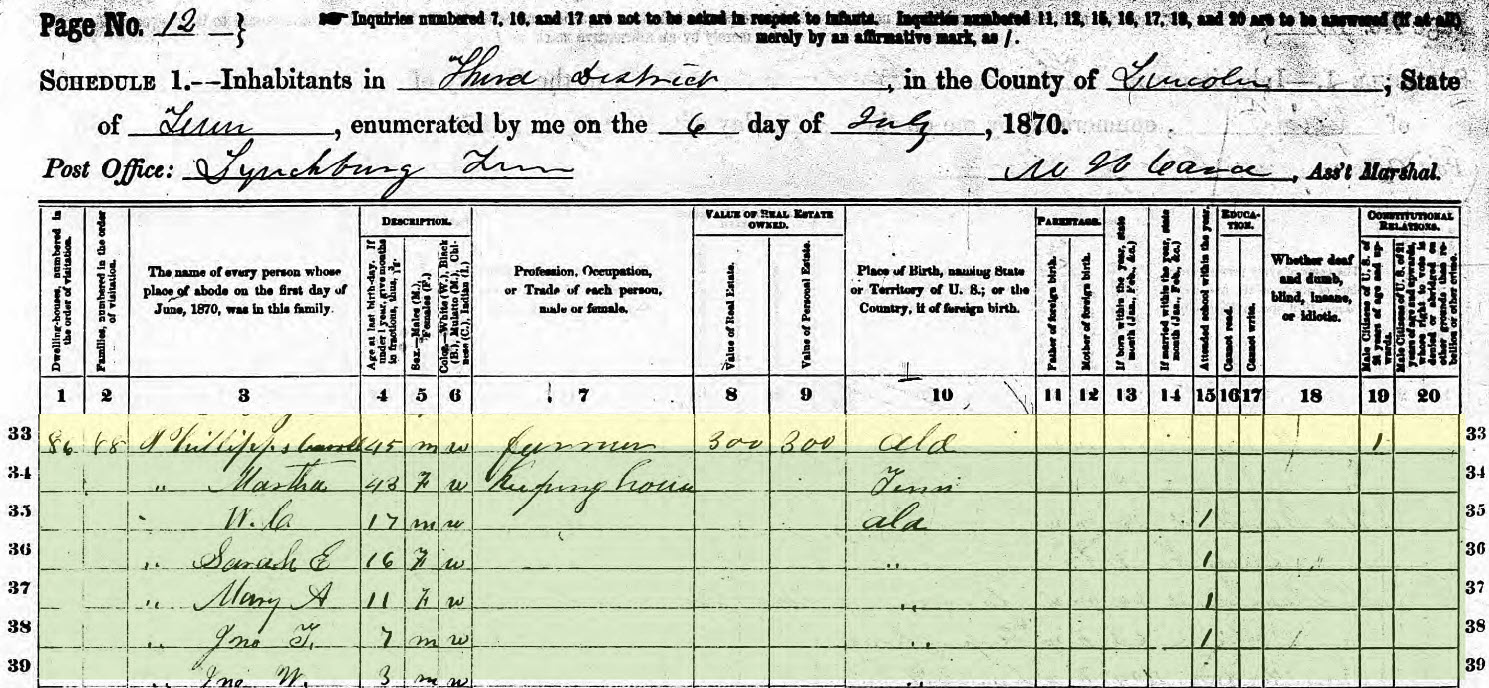 Page No. 12 }
☞ Inquiries numbered 7, 16, and 17 are not to be asked in respect to infants. Inquiries numbered 11, 12, 15, 16, 17, 19, and 20 are to be answered (if at all)
merely by an affirmative mark, as /.
SCHEDULE 1.--Inhabitants in Third District, in the County of Lincoln; State
of Tenn, enumerated by me on the 6 day of July, 1870.
Post Office: Lynchburg Tenn
Ass't Marshal.
Dwelling-houses, numbered in the order of visitation.
Families, numbered in the order of visitation.
The name of every person whose place of abode on the first day of June, 1870, was in this family.
DESCRIPTION.
Age at last birth-day. If under 1 year, give months in fractions, thus, 3/12.
Sex.--Males (M.), Females (F.)
Color.--White (W.), Black (B.), Mulatto (M.), Chinese (C.), Indian (I.)
Profession, Occupation, or Trade of each person, male or female.
VALUE OF REAL ESTATE OWNED.
Value of Real Estate.
Value of Personal Estate.
Place of Birth, naming State or Territory of U. S.; or the Country, if of foreign birth.
PARENTAGE.
Father of foreign birth.
Mother of foreign birth.
If born within the year, state month (Jan., Feb., &c.)
If married within the year, state month (Jan., Feb., &c.)
Attended school within the year.
EDUCATION.
Cannot read.
Cannot write.
Whether deaf and dumb, blind, insane, or idiotic.
CONSTITUTIONAL RELATIONS.
Male Citizens of U. S. of 21 years of age and upwards.
Male Citizens of U. S. of 21 years of age and upwards, whose right to vote is denied or abridged on other grounds than rebellion or other crime.
1 2 3 4 5 6 7 8 9 10 11 12 13 14 15 16 17 18 19 20
33 86 88 45 m w farmer 300 300 Ala 1 33
34 " Martha 43 F w Keeping house Tenn 34
35 " W. C 17 m w Ala 1 35
36 " Sarah E 16 F w " 1 36
37 " Mary A 11 F w " 1 37
38 " Jno T. 7 m w " 1 38
39 " W. 3 m w " 39